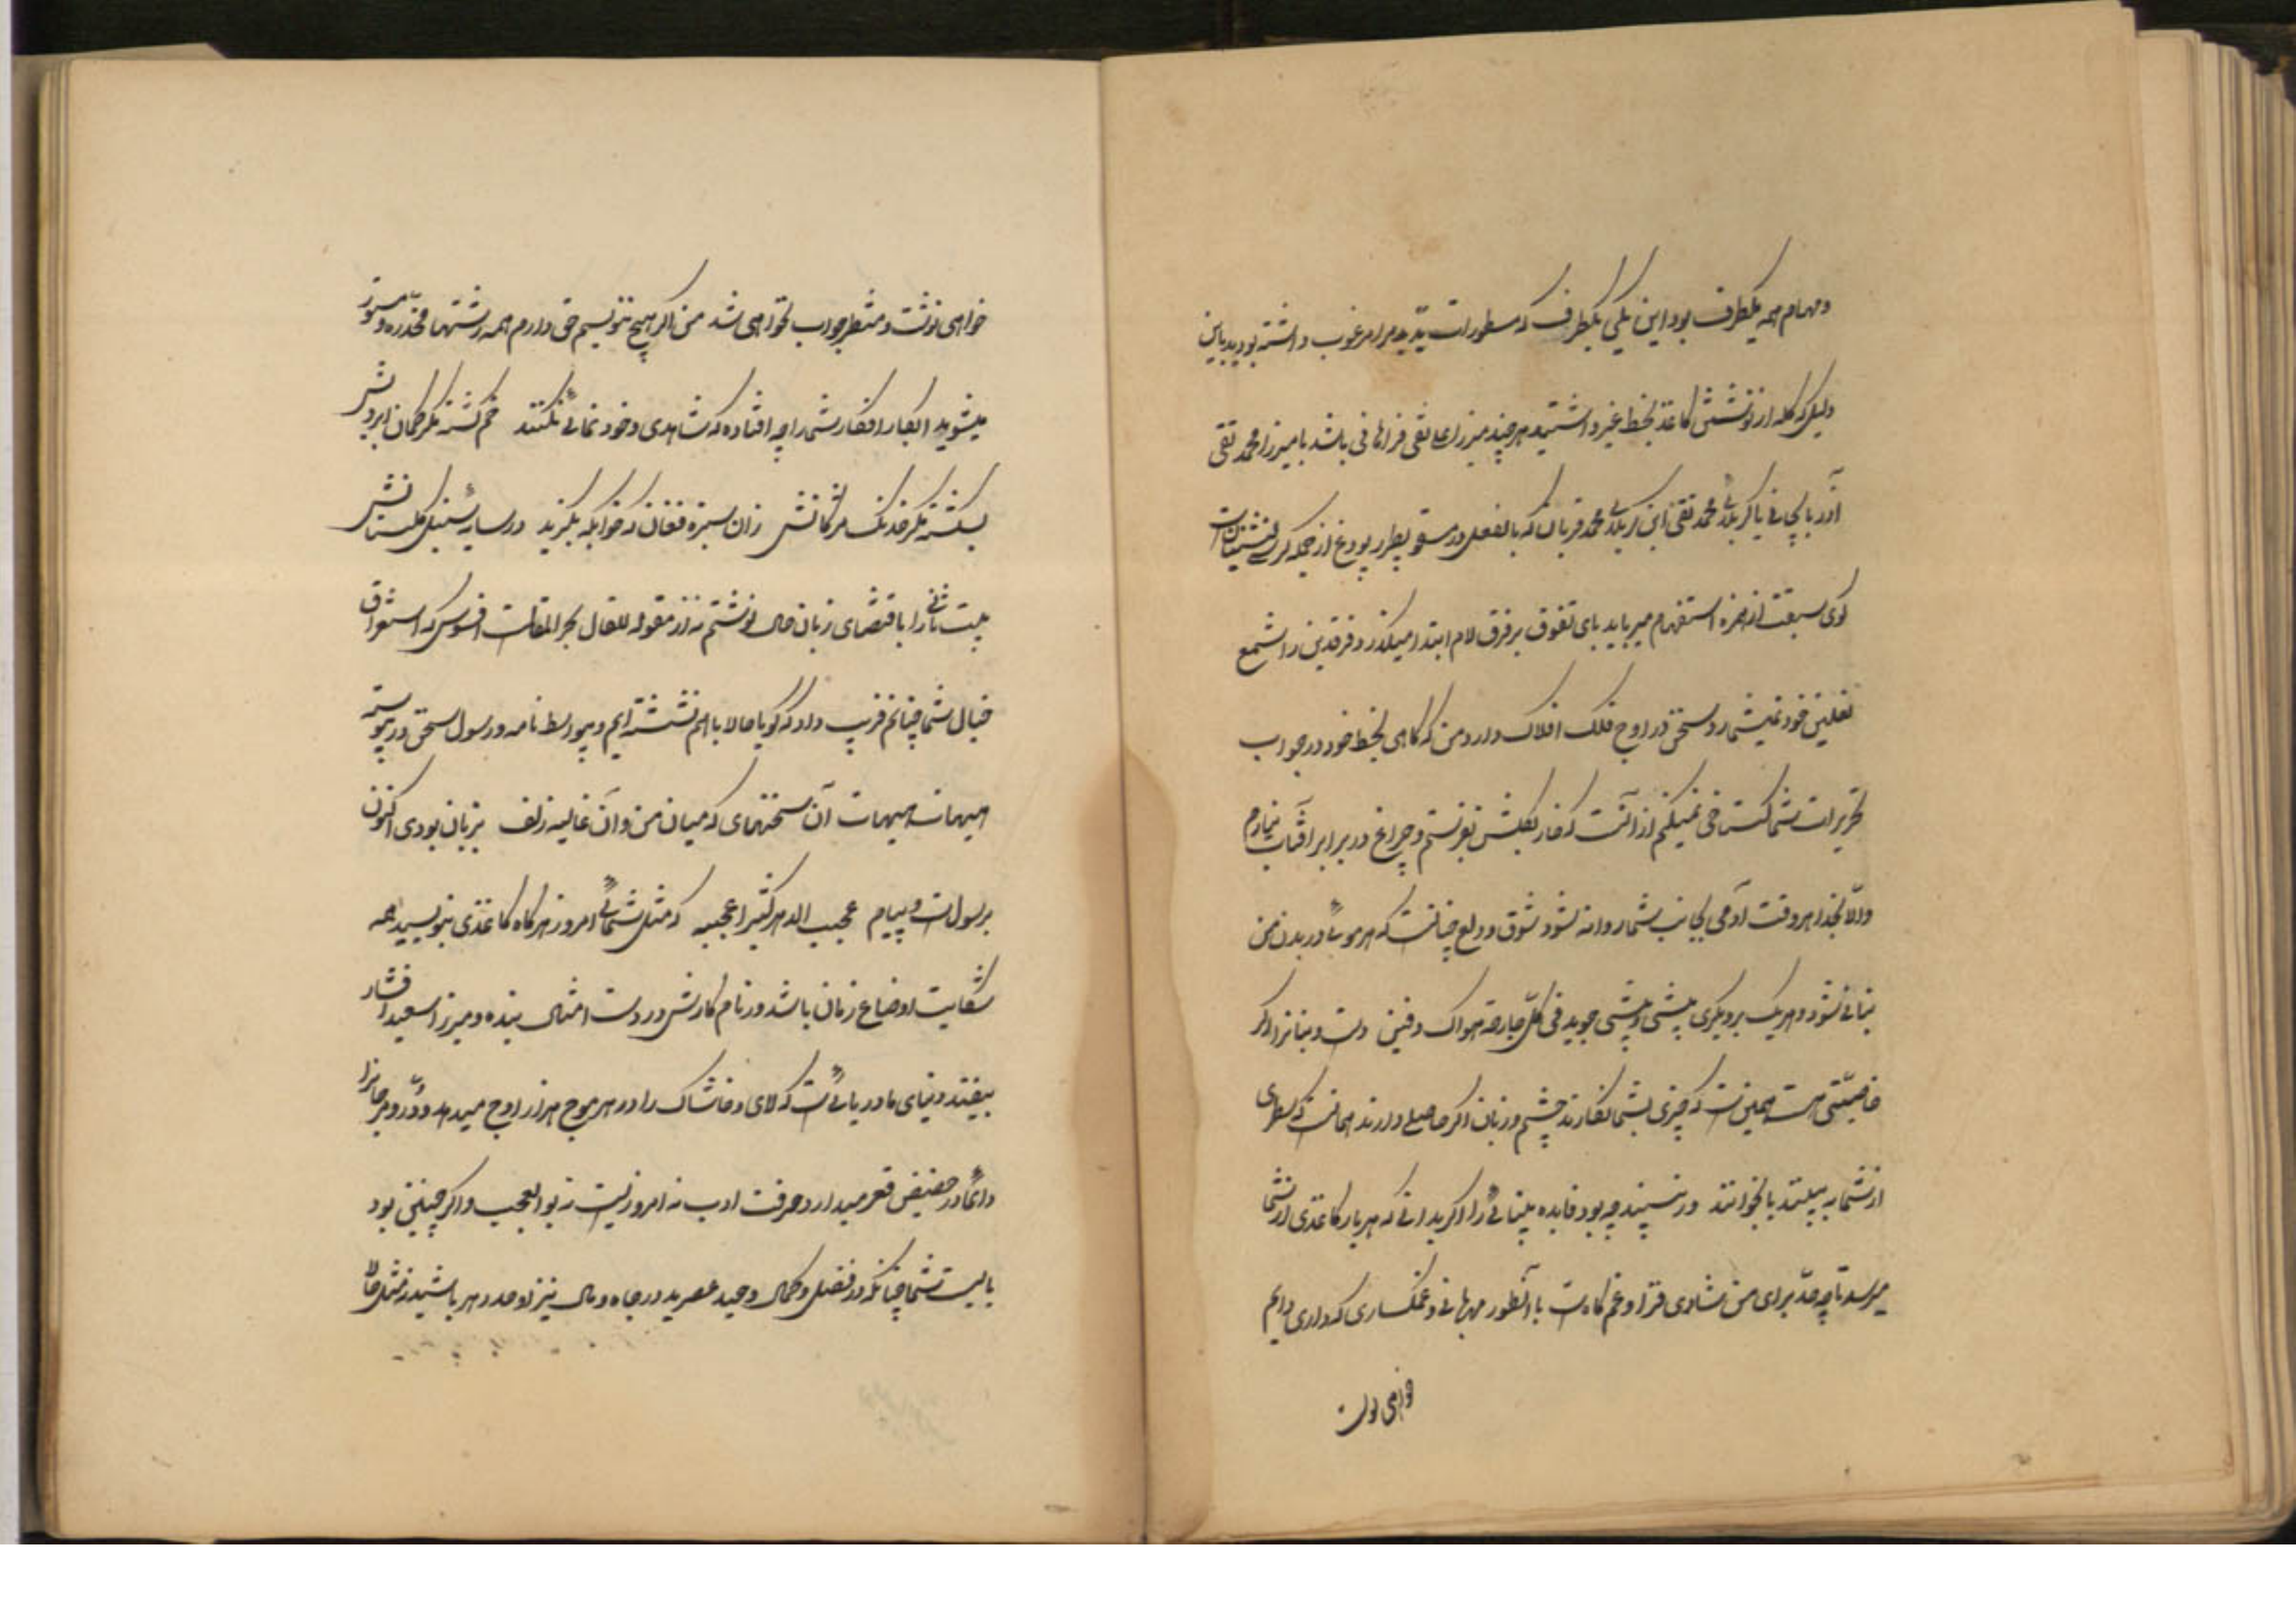 و مهام همه یکطرف بود این یکی یکطرف که مسطورات یدیه مرا مرغوب داشته بودید باین
دلیل که گله از نوشتن کاغذ بخط غیر داشتید هر چند میرزا علی نقی فراهانی باشد یا میرزا محمد تقی
آذربایجانی یا کربلائی محمد تقی ابن کربلائی محمد قربان که بالفعل در سقو پطرزبورغ از جمله کرسی نشینان است
گوی سبقت از همزه استفهام میرباید پای تفوق بر فرق لام ابتدا میگذارد فرقدین را شسع
نعلین خود نمیشمارد سخن در اوج فلک افلاک دارد من که گاهی بخط خود در جواب
تحریرات شما گستاخی نمیکنم از آنست که خار بگلشن نفرستم و چراغ در برابر آفتاب نیارم
والّا بخدا هر وقت آدمی بجانب شما روانه شود شوق و ولع چنانست که هر موئی در بدن من
بنانی شود و هریک بر دیگری پیشی و بیشی جوید فی کل جارحة هواک دفین دست و بنانرا اگر
خاصیّتی هست همین است که چیزی بشما نگارند چشم و زبان اگر حاصلی دارند همانست که سطری
از شما به بینند یا بخوانند ور نبیند چه بود فایده بینائی را اگر بدانی که هر بار کاغذی از شما
میرسد تا چه حدّ برای من شادی فزا و غم کاه است با آنطور مهربانی و غمگساری که داری دایم
خواهی نوشت
خواهی نوشت و منتظر جواب نخواهی شد من اگر هیچ ننویسم حق دارم همه رشتها مخدّره و مستوره
میشوید ابکار افکار شما را چه افتاده که شاهدی و خود نمائی نکنند خم گشته مگر کمان ابروش
بشکسته مگر خدنگ مژگانش زان سبزه فغان که خوابگه بگزید در سایهٔ سنبل گلستانش
بیت ثانی را باقتضای زبان حال نوشتم نه از مقوله للقال بحر المقالست افسوس که استغراق
خیال شما چنانم فریب داد که گویا حالا با هم نشسته ایم و بیواسطه نامه و رسول سخن در پیوسته
هیهات هیهات آن سخنهای که میان من و آن غالیه زلف بزبان بودی اکنون
برسولست و پیام عجیب الدهر کثیرا عجیبه که مثل شمائی امروز هرگاه کاغذی بنویسید همه
شکایت اوضاع زمان باشد و زمام کارش در دست امثال بنده و میرزا سعید افشار
بیفتد دنیای ما دریائیست که لای و خاشاک را در هر موج هزار اوج میدهد و درّ و مرجانرا
دائما در حضیض قعر میدارد حرفت ادب نه امروزیست نه بوالعجب و اگر چنین بود
بایست شما چنانکه در فضل و کمال وحید عصرید در جاه و مال نیز اوحد دهر باشید نه مثل حالا